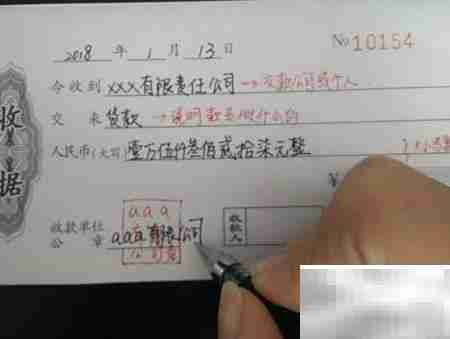 2018 年 1 月 13 日 No 10154
今收到 xxx有限责任公司 →交款公司或个人
交来 货款 →说明款是做什么的
人民币(大写) 壹万伍仟叁佰贰拾柒元整
¥
收款单位公章 aaa有限公司
aaa
收款人
收据